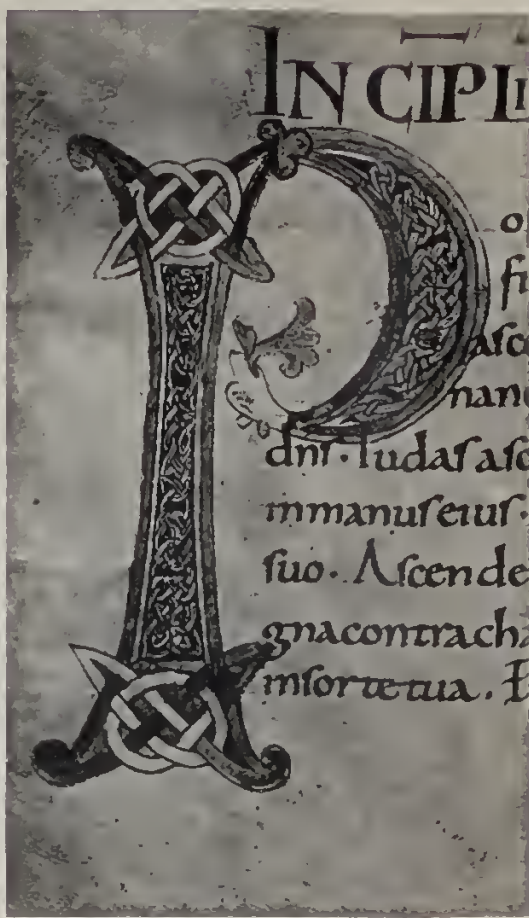 INCIPI
P
o
fi
asce
nanu
dnſ. Iudaſ aſc
inmanuſeiuſ.
ſuo. Aſcende
gnacontracha
inſortetua. E